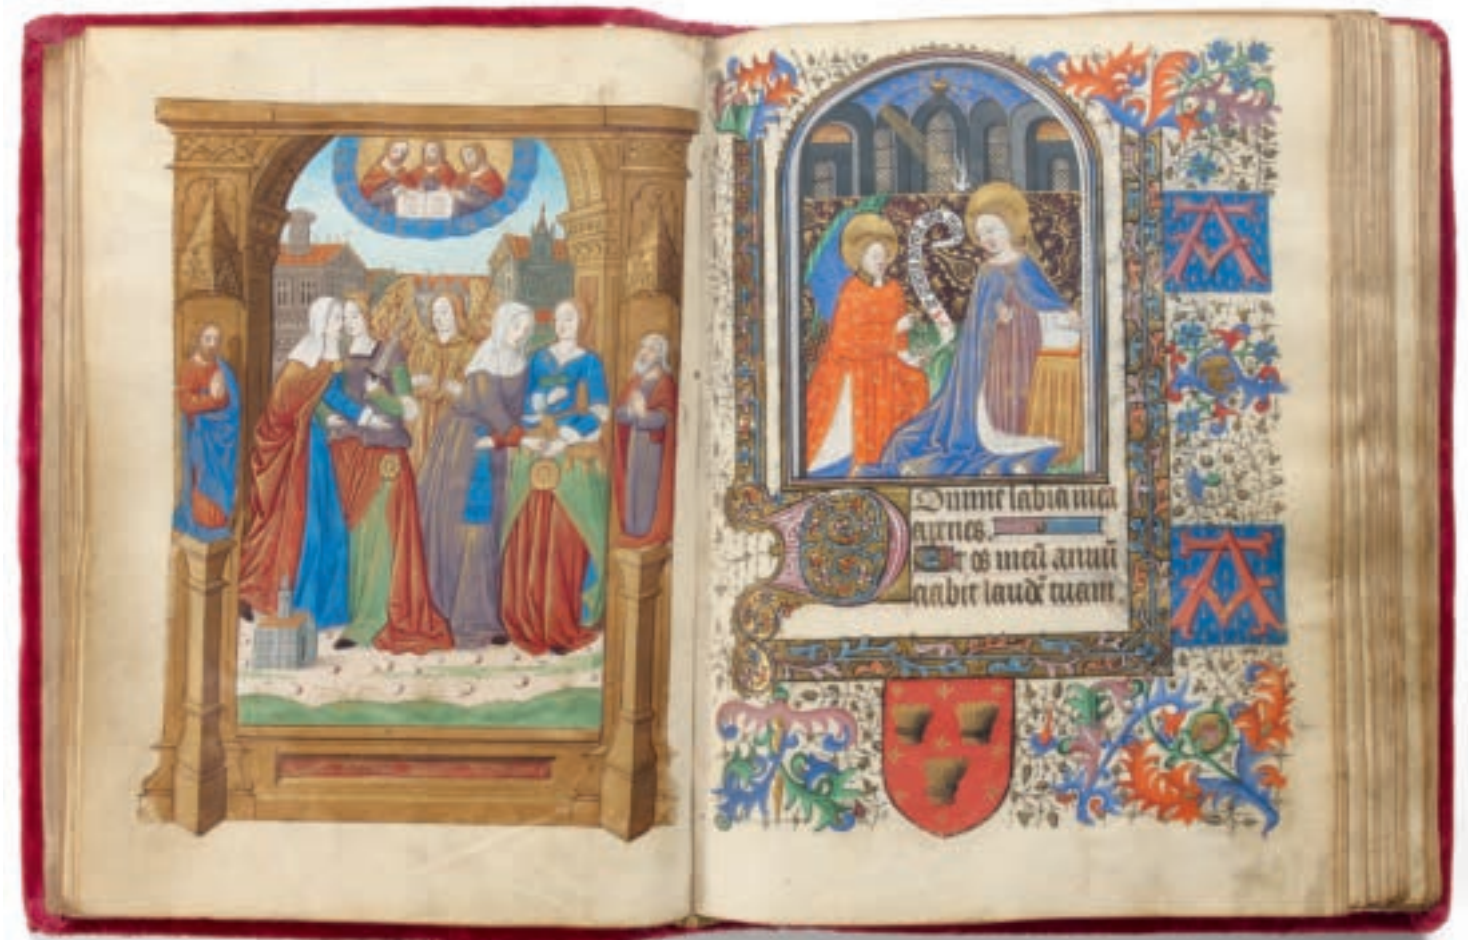 A
Domine labia mea
aperies.
Et os meū annūū
ciabit laudē tuam.
A